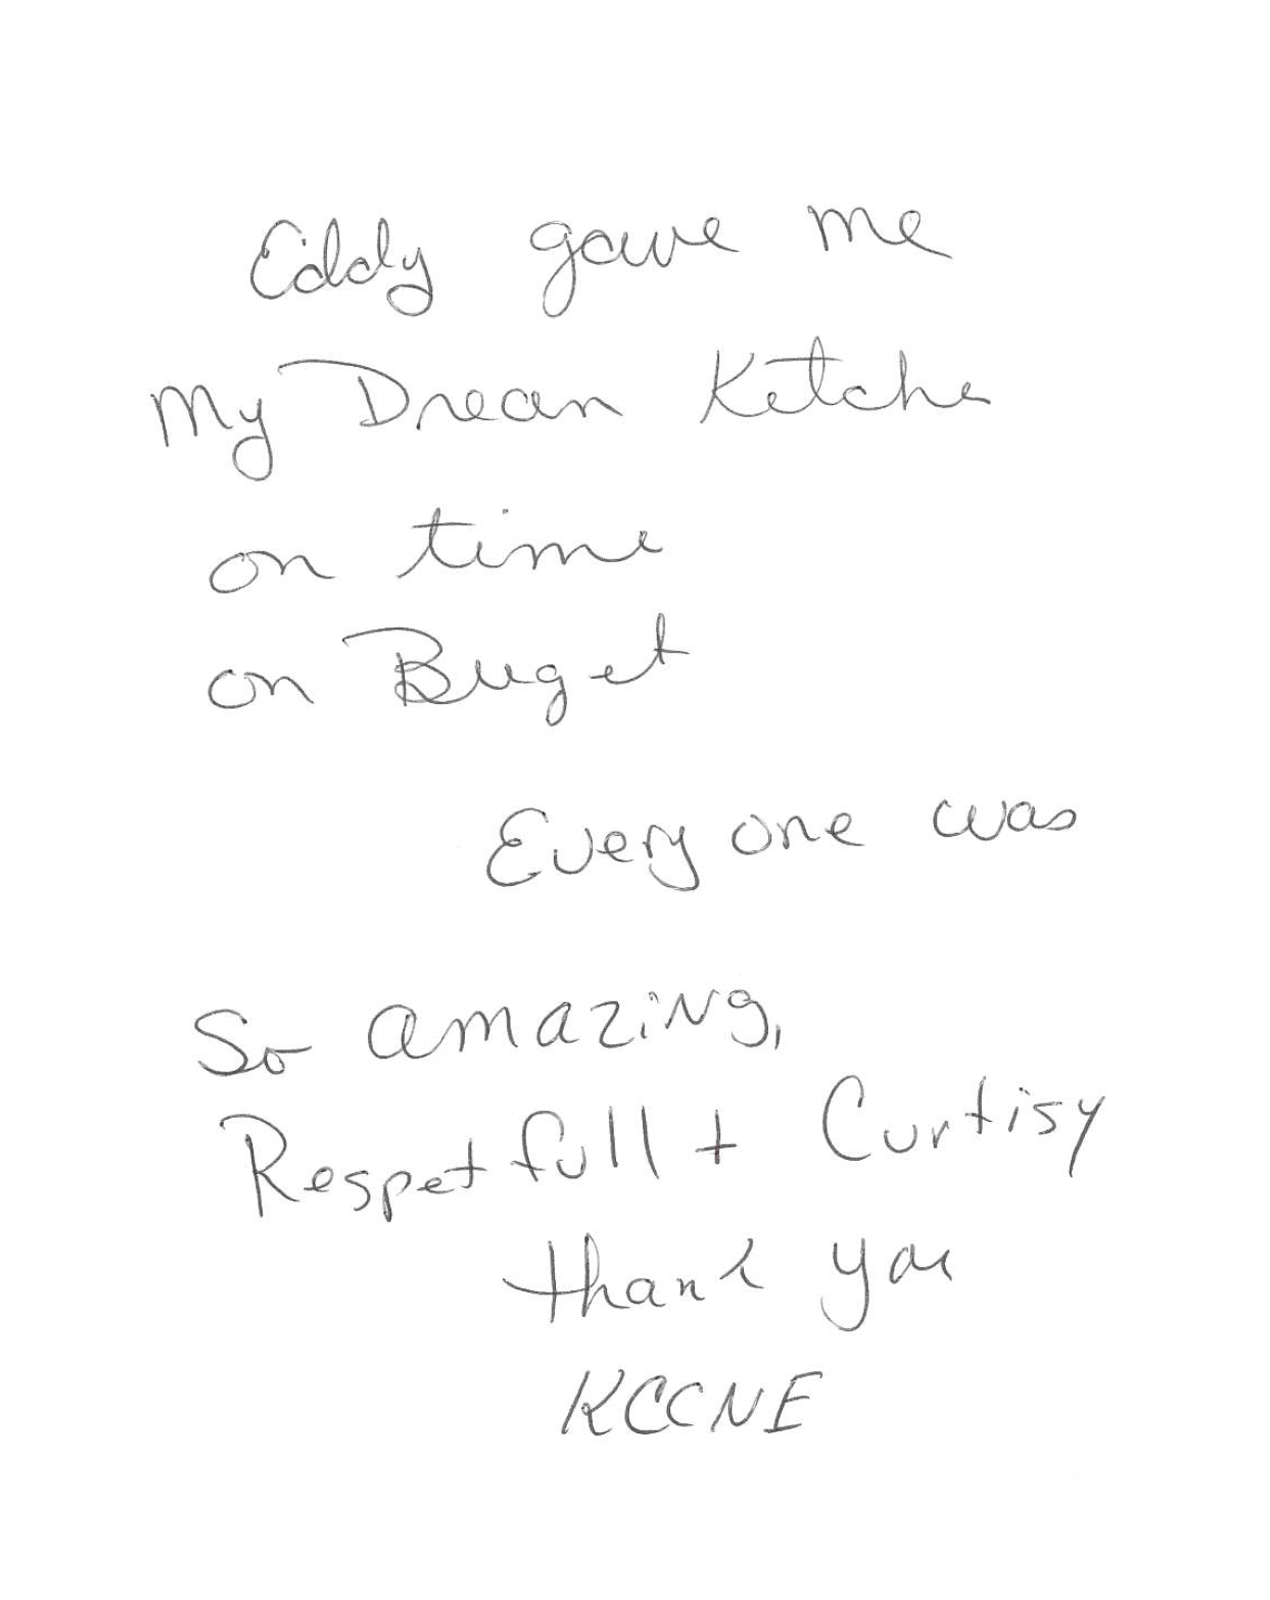 Eddy gave me
My Dream Ketche
on time
on Buget
Every one was
So amazing,
Respetfull + Curtisy
thank you
KCCNE